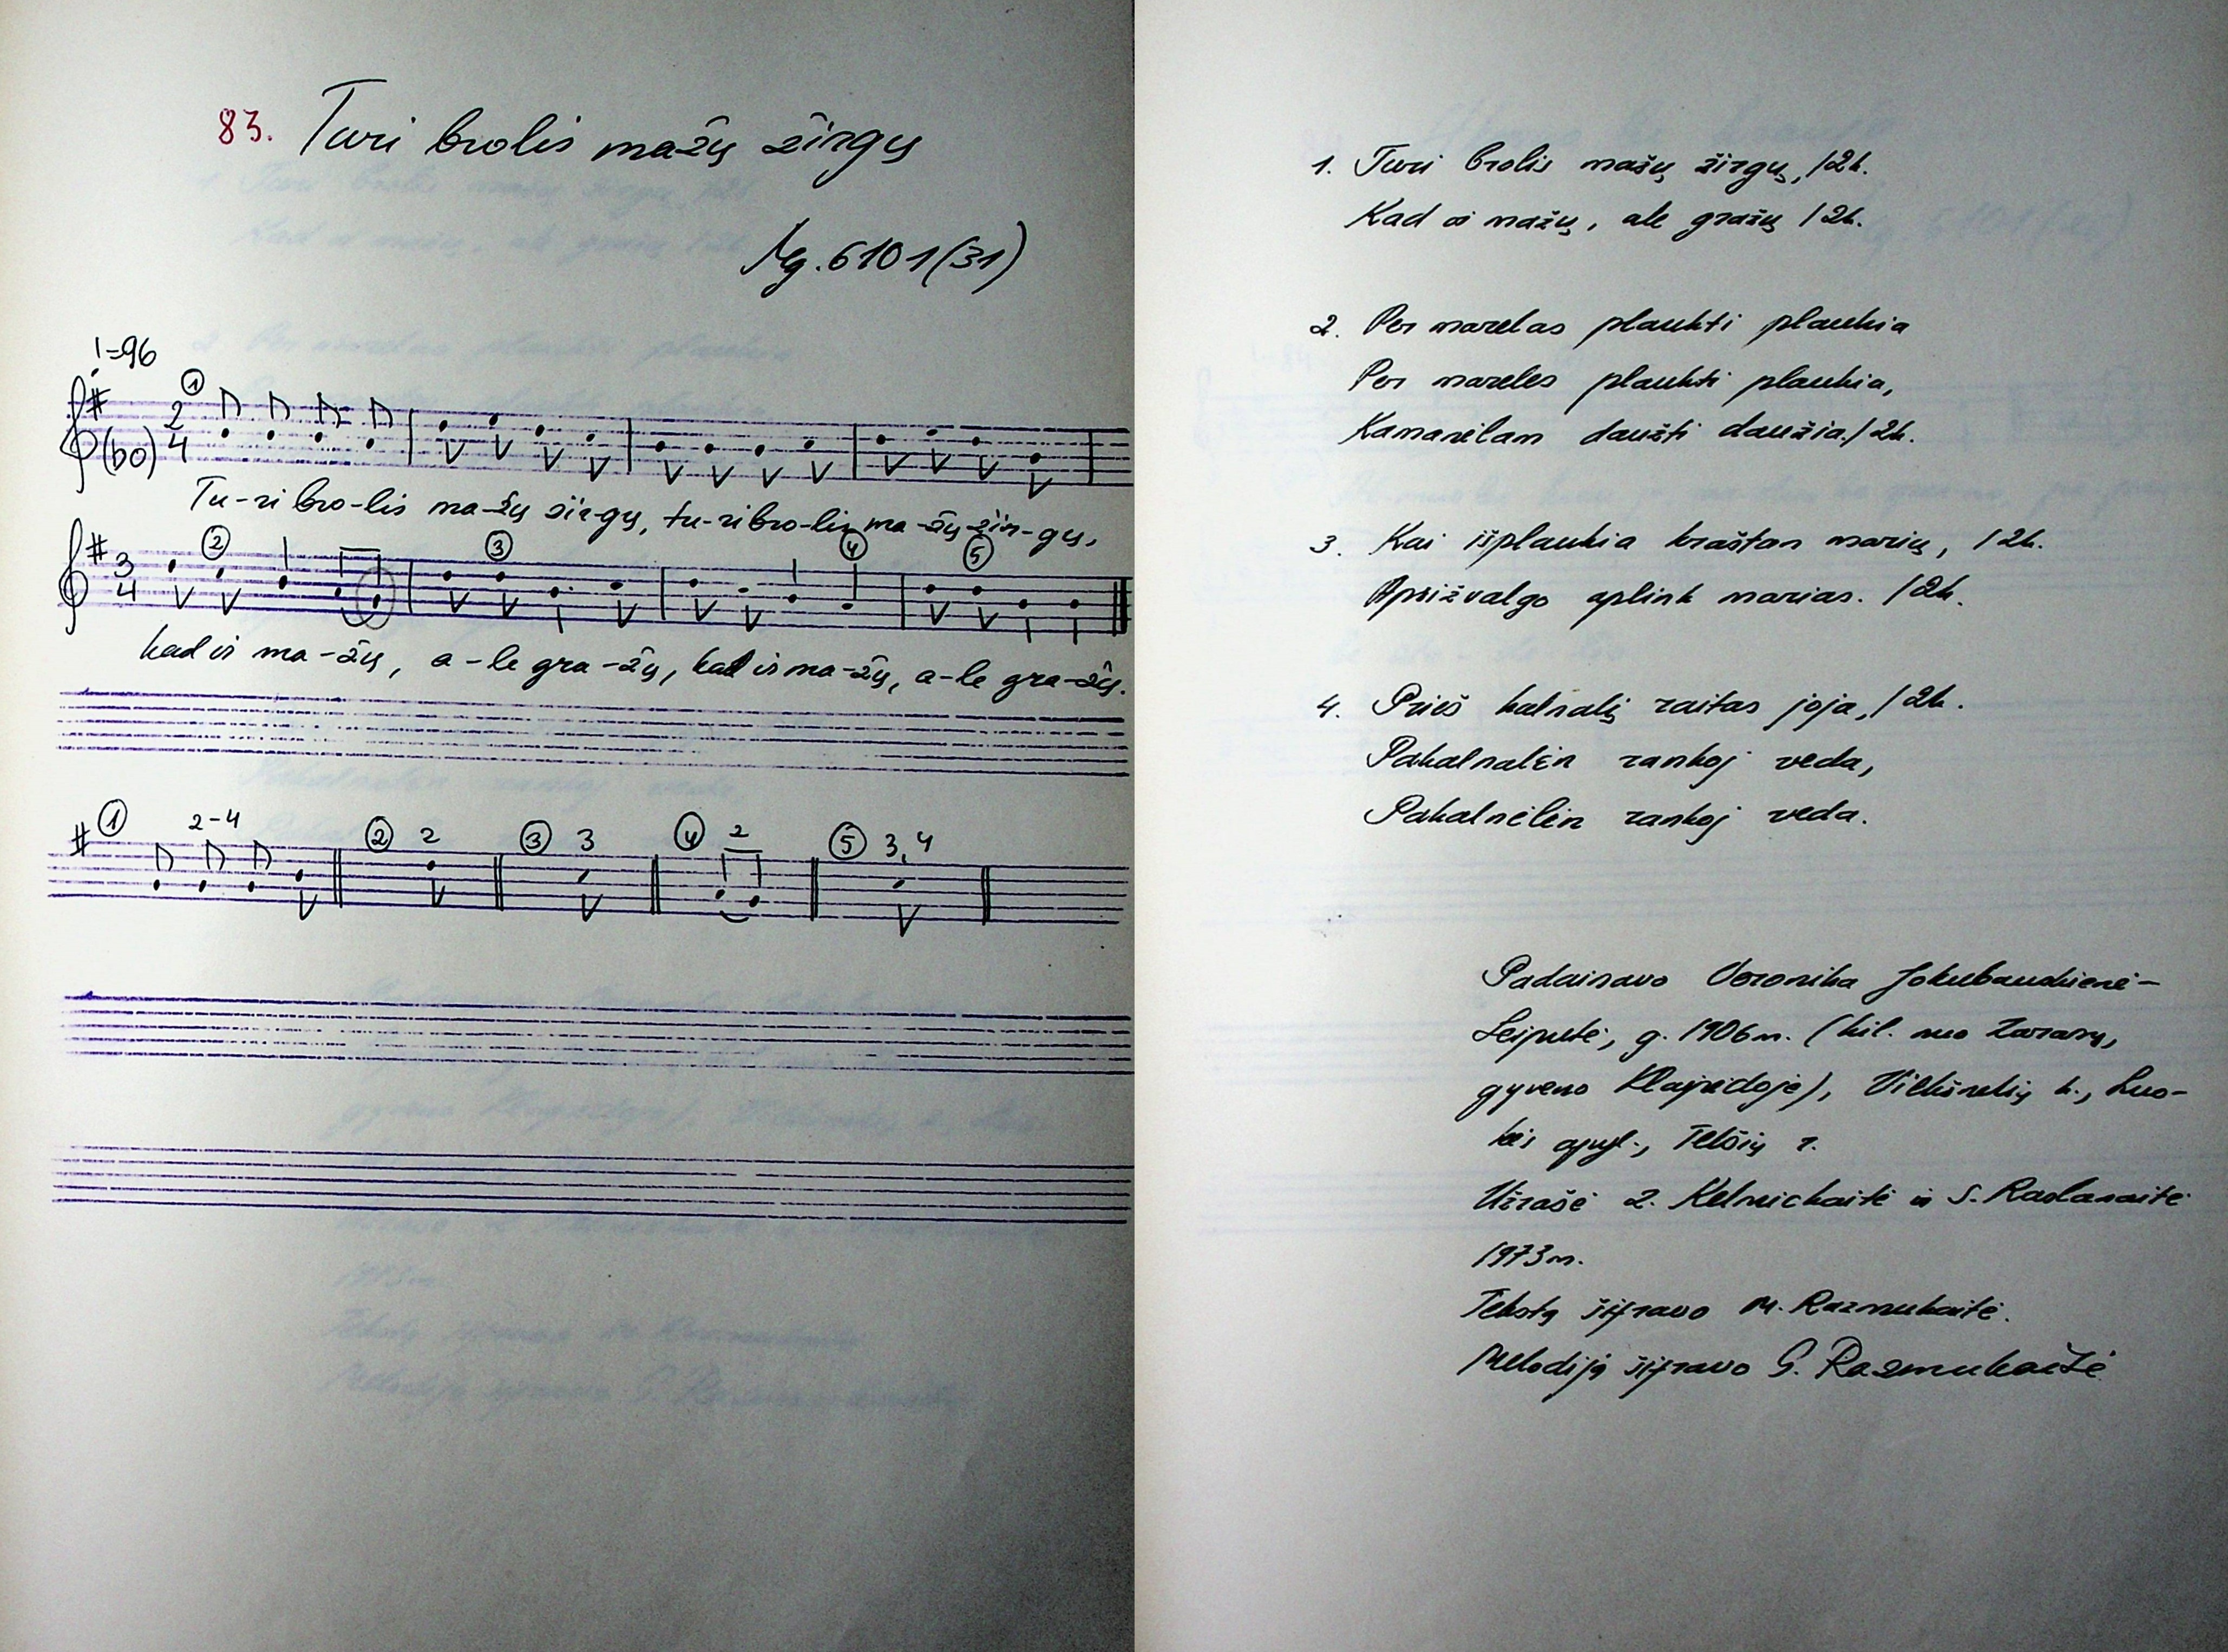 83. Turi brolis mažų žirgų
Mg. 6101(31)
♩=96
① 
Tu-ri bro-lis ma-žų žir-gų, tu-ri bro-lis ma-žų žir-gų,
② ③ ④ ⑤
kad ir ma-žų, a-le gra-žų, kad ir ma-žų, a-le gra-žų.
① 2-4 ② 2 ③ 3 ④ 2 ⑤ 3,4
1. Turi brolis mažų žirgų, /2k.
Kad ir mažų, ale gražų /2k.
2. Per marelas plaukti plaukia
Per mareles plaukti plaukia,
Kamanėlam daužti daužia. /2k.
3. Kai išplaukia kraštan marių, /2k.
Apsižvalgo aplink marias. /2k.
4. Prieš kalnalį raitas joja, /2k.
Pakalnalėn rankoj veda,
Pakalnėlėn rankoj veda.
Padainavo Veronika Jokubauskienė-
Leiputė, g. 1906 m. (kil. nuo Zarasų,
gyveno Klaipėdoje), k., Luo-
kės apyl., Telšių r.
Užrašė Z. Kelmickaitė ir S.
1973 m.
Tekstą šifravo M. Razmukaitė.
Melodiją šifravo G. Razmukaitė